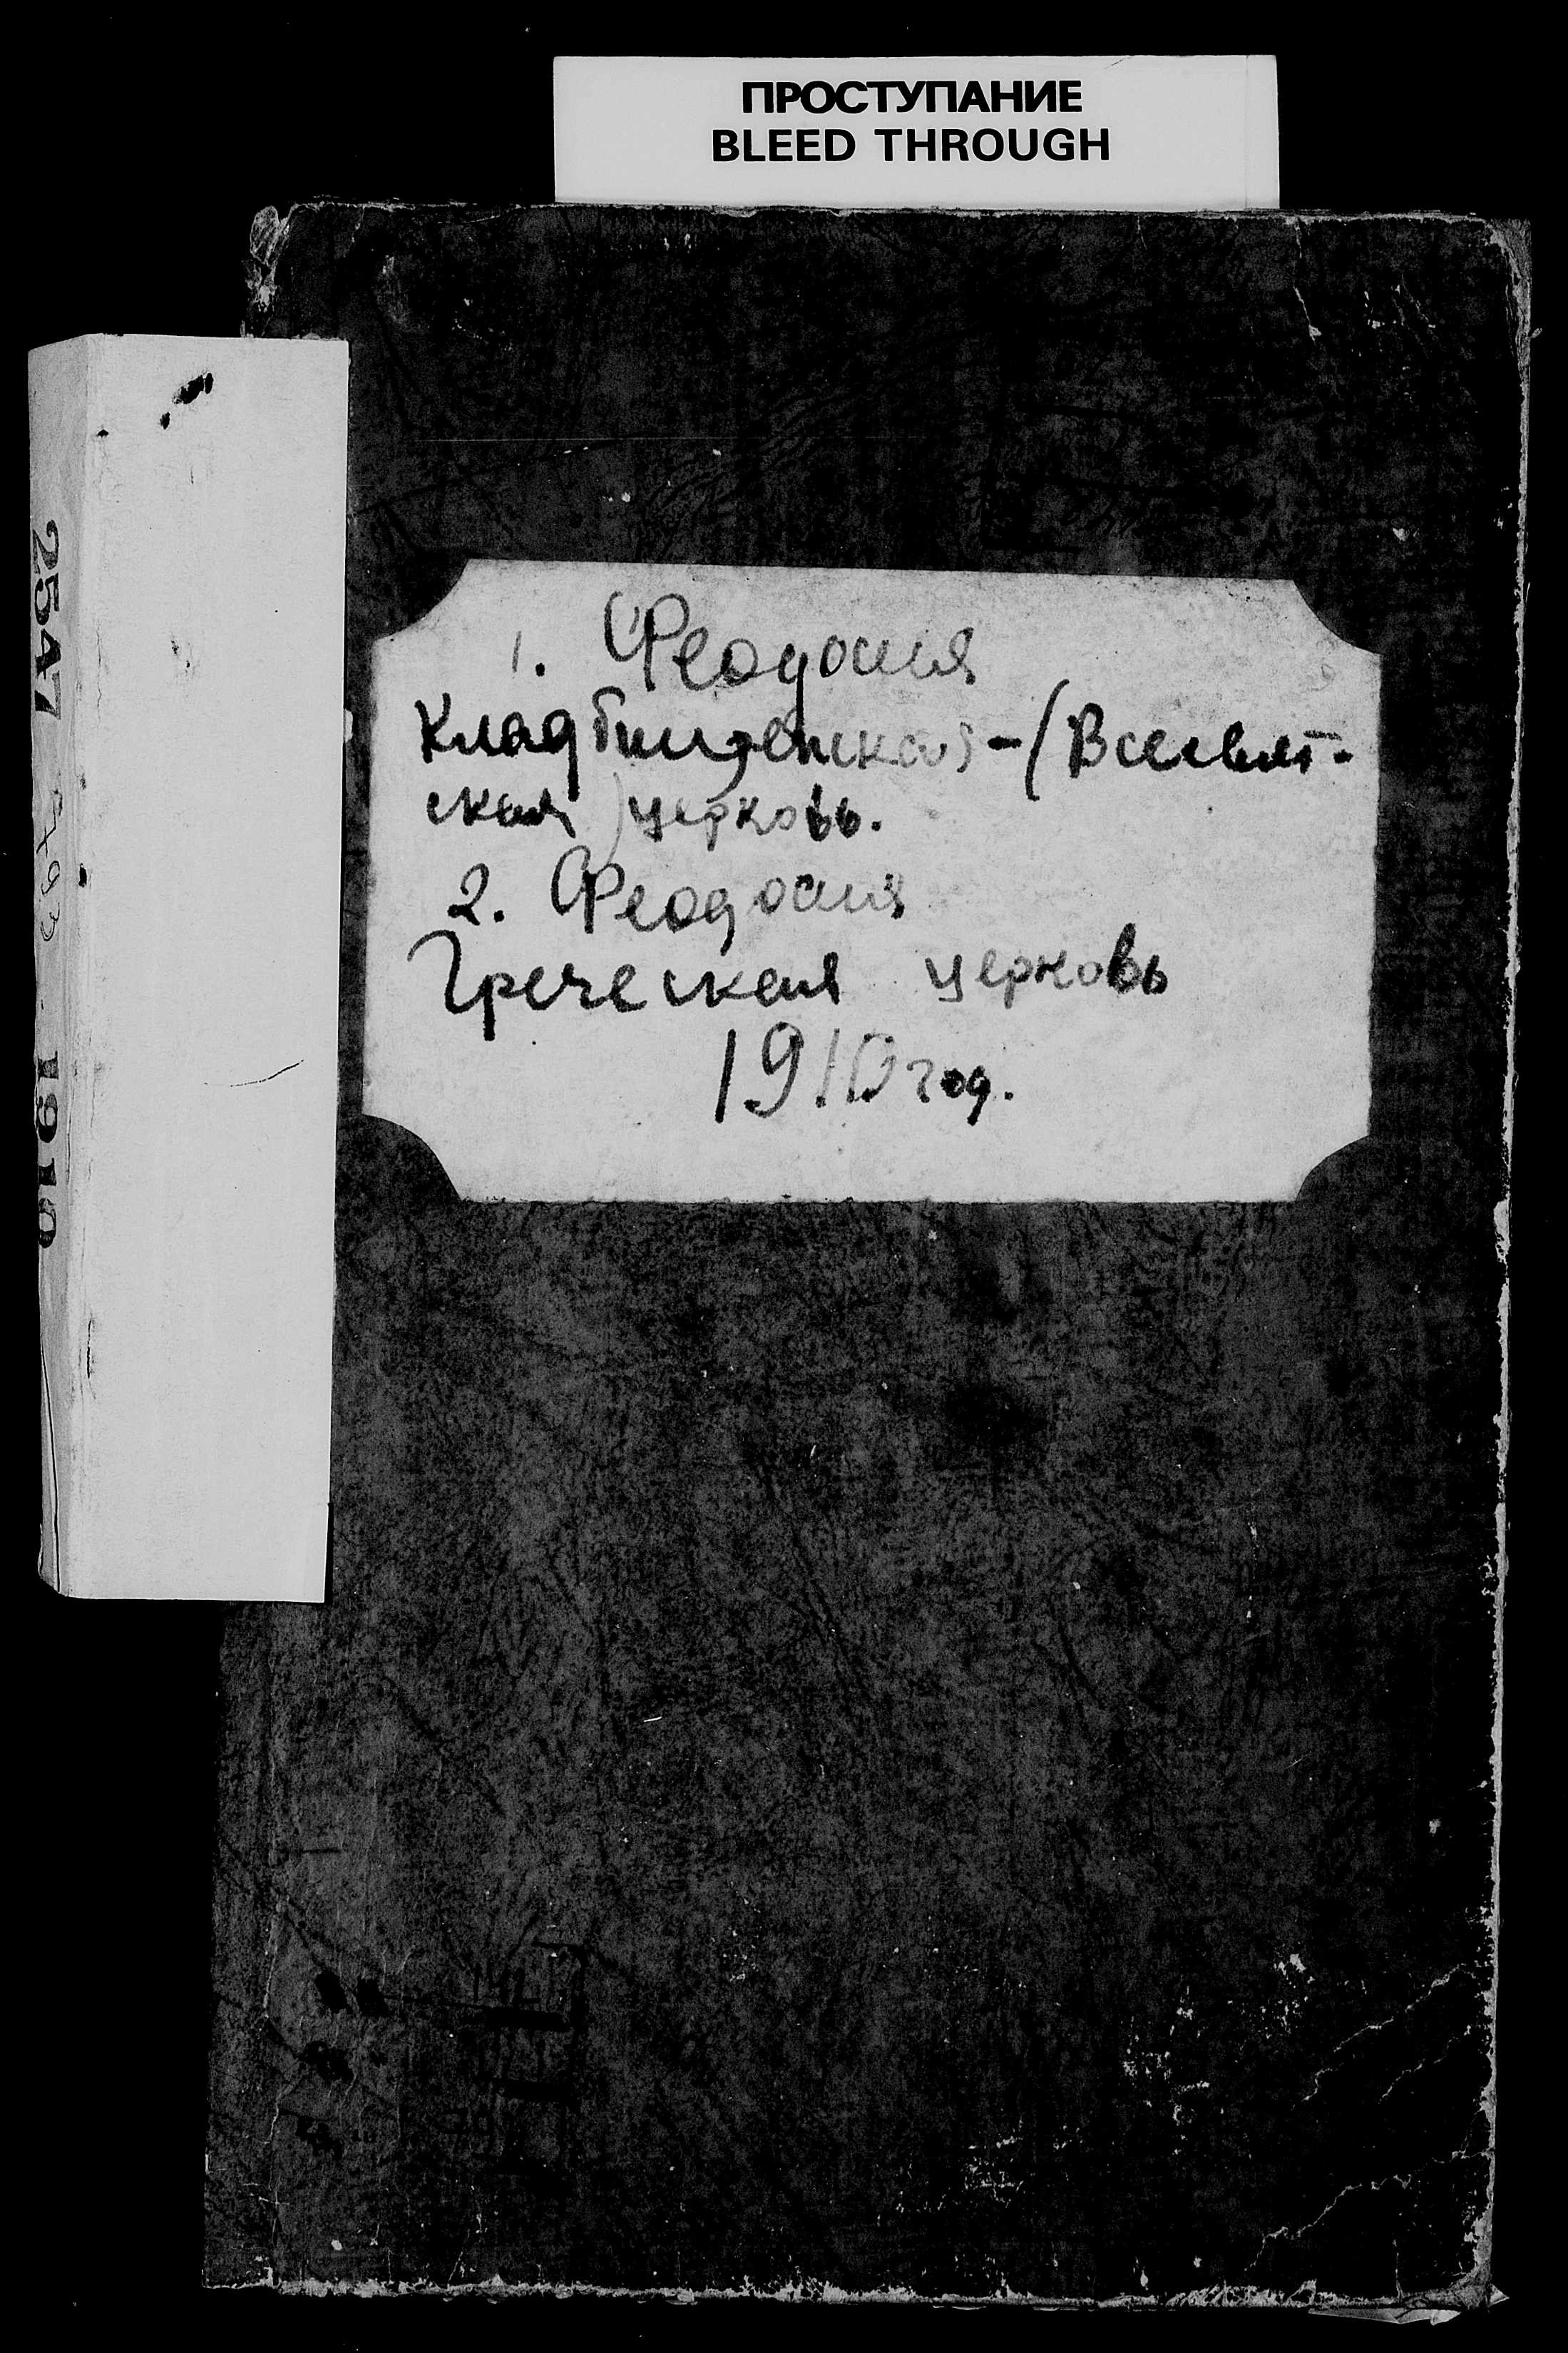 ПРОСТУПАНИЕ
BLEED THROUGH
1. Феодосия
Кладбищенская-(Всесвят-
ская) церковь.
2. Феодосия
Греческая церковь
1910 год.
2547 793 1910